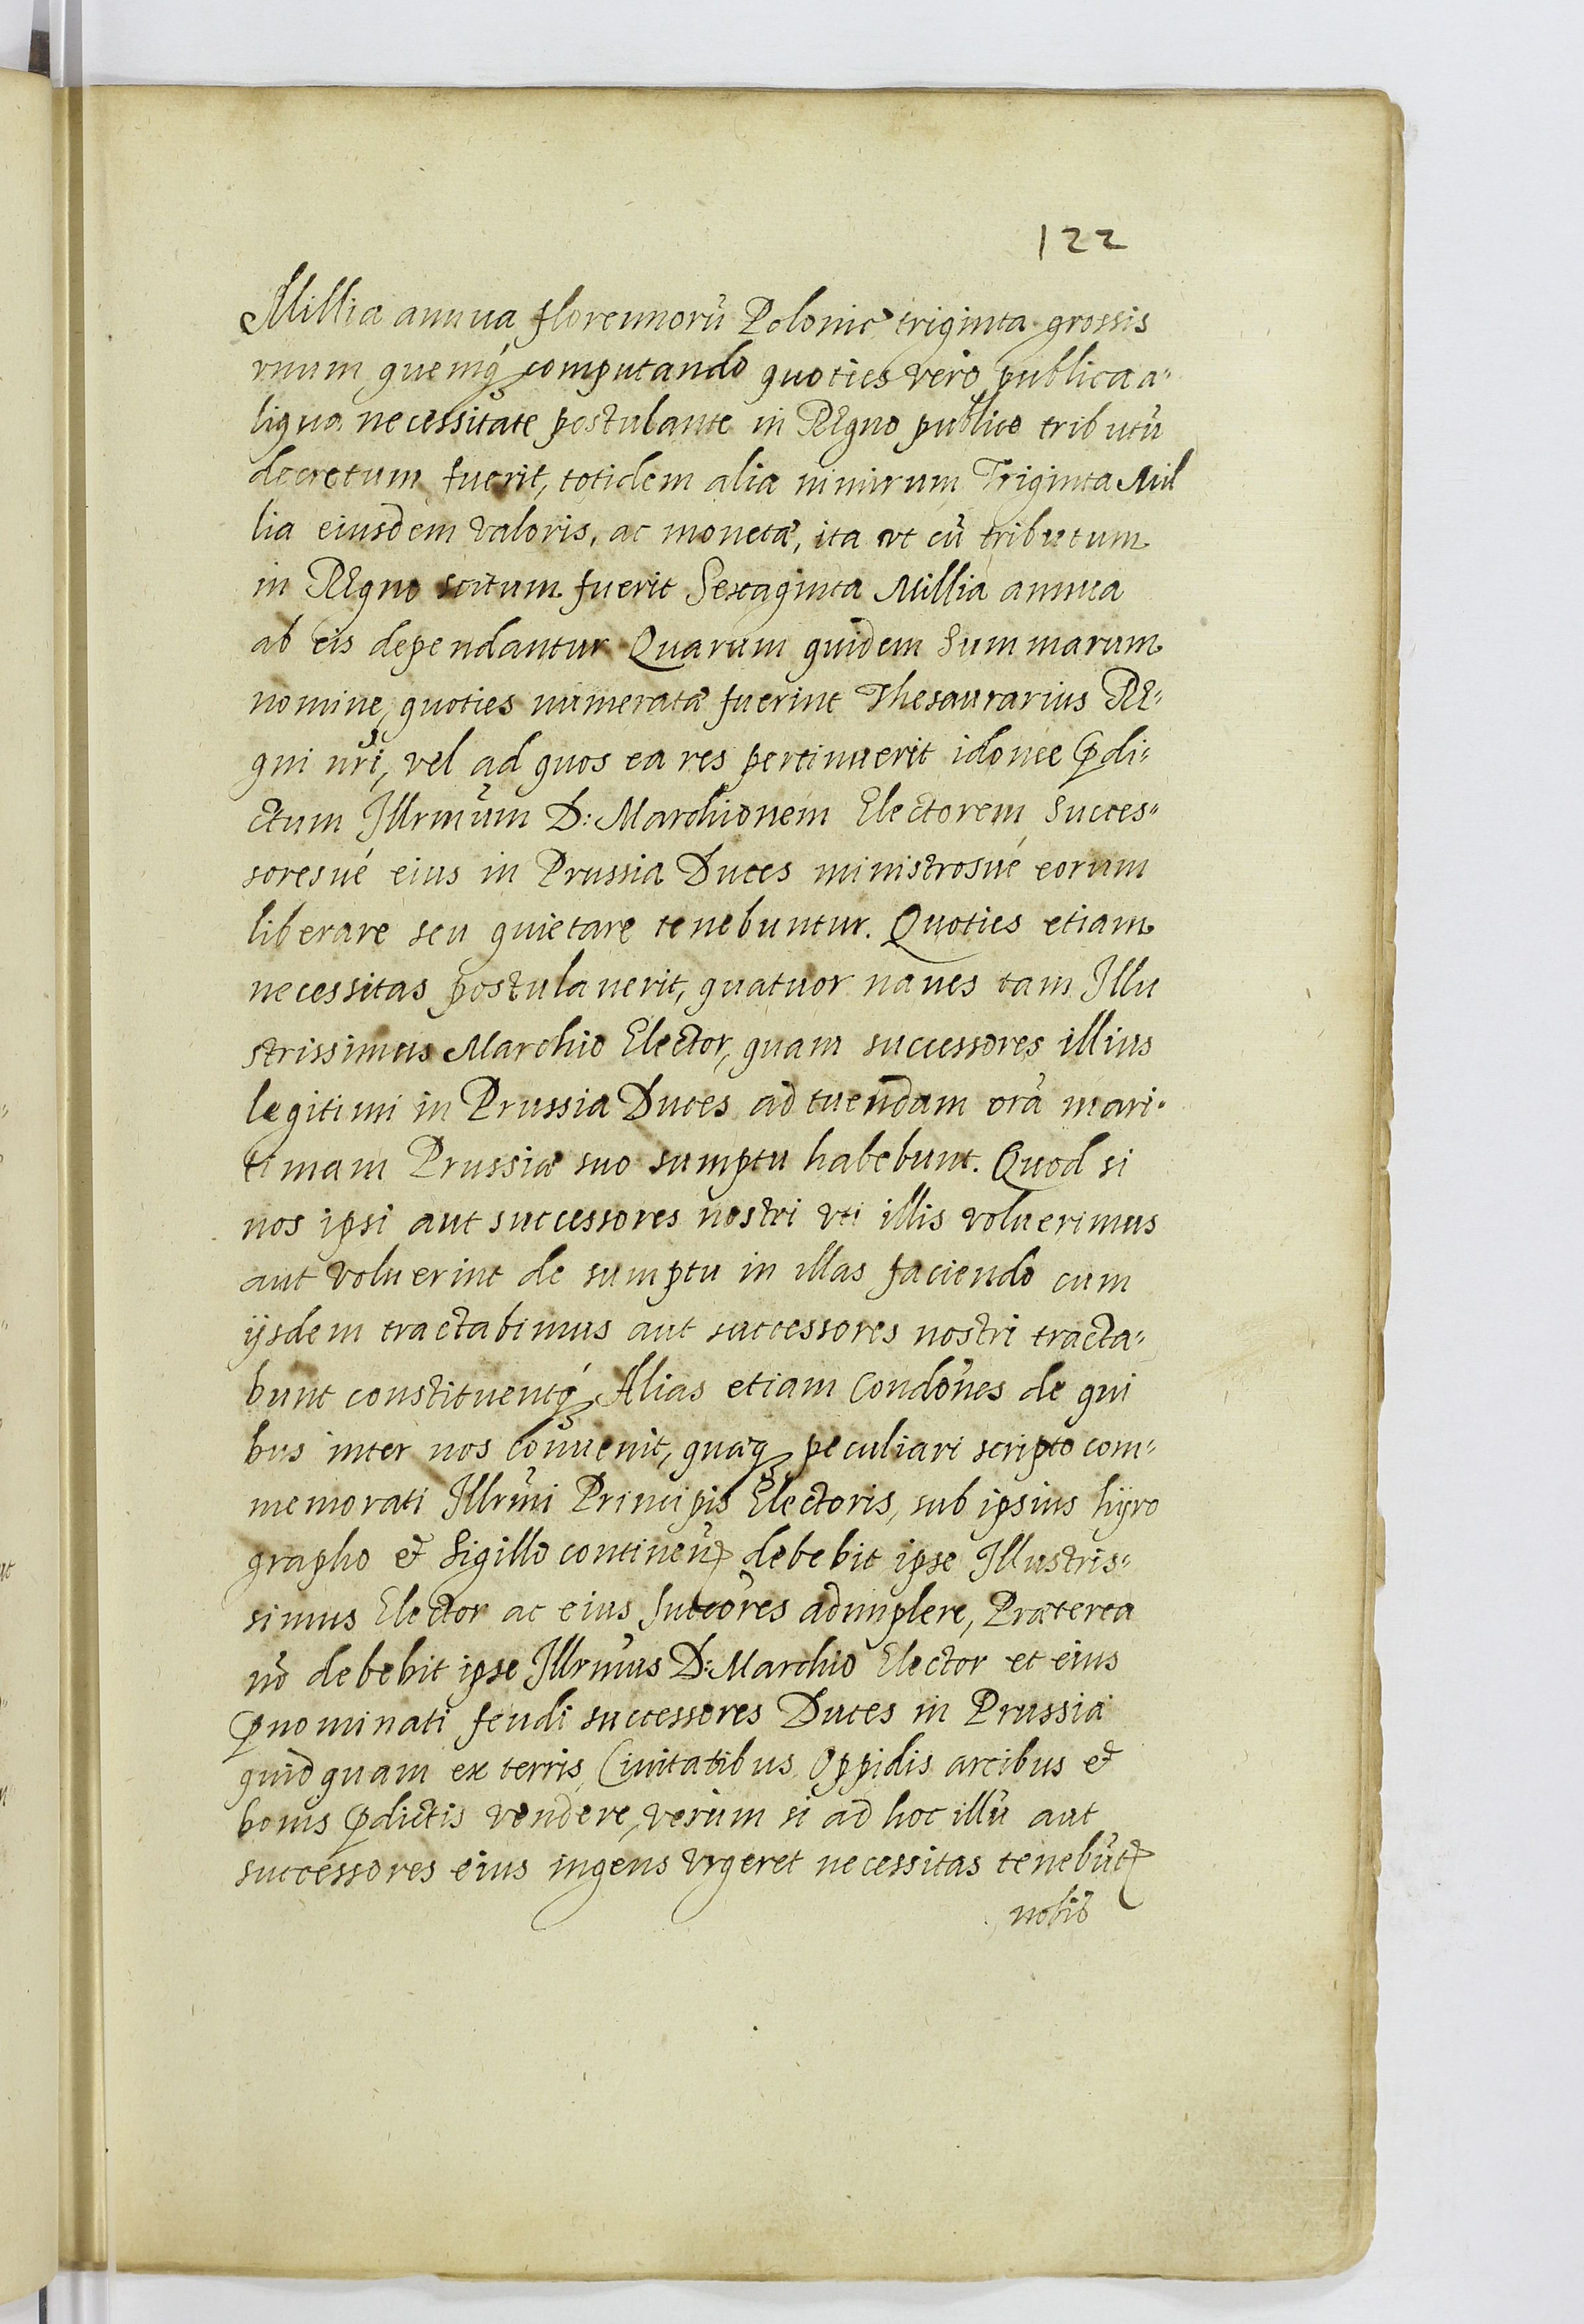 122
Millia annua florennorũ Polonic̓ triginta grossis
vnum quemq́ꝫ computando quoties vero publica a-
liqua necessitate postulante in REgno publico tributũ
decretum fuerit, totidem alia nimirum Triginta Mil
lia eiusdem valoris, ac monetæ, ita vt cũ tributum
in REgno scitum fuerit Sexaginta Millia annua
ab eis dependantur Quarum quidem Summarum
nomine, quoties numeratæ fuerint Thesaurarius RE-
gni nr̃i, vel ad quos ea res pertinuerit idonee p̃di-
ctum Illrmũm D: Marchionem Electorem Succes-
soresué eius in Prussia Duces ministrosué eorum
liberare seu quietare tenebuntur. Quoties etiam
necessitas postulauerit, quatuor naues tam Illu
strissimus Marchio Elector, quam successores illius
legitimi in Prussia Duces ad tuendam orã mari-
timam Prussiæ suo sumptu habebunt. Quod si
nos ipsi aut successores nostri vti illis voluerimus
aut voluerint de sumptu in illas faciendo cum
ijsdem tractabimus aut successores nostri tracta-
bunt constituentq́ꝫ Alias etiam Condões de qui
bus inter nos conuenit, quæqꝫ peculiari scripto com-
memorati Illrm̃i Principis Electoris, sub ipsius hijro
grapho et Sigillo continent̃ debebit ipse Illustris-
simus Elector ac eius Succõres adimplere, Præterea
nõ debebit ipse Illrmũs D: Marchio Elector et eius
p̃nominati feudi successores Duces in Prussia
quidquam ex terris Ciuitatibus Oppidis arcibus et
bonis p̃dictis vendere, verùm si ad hoc illũ aut
successores eius ingens vrgeret necessitas tenebũt̃
nobis